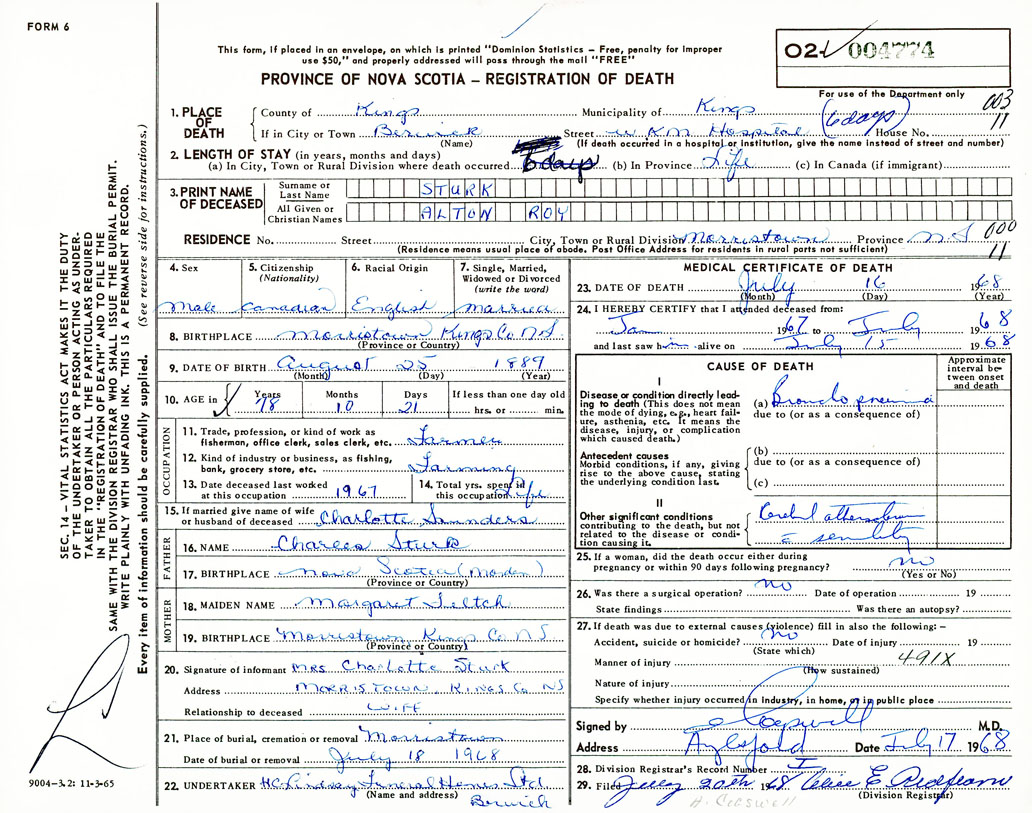 FORM 6
This form, if placed in an envelope, on which is printed "Dominion Statistics – Free, penalty for improper
use $50," and properly addressed will pass through the mail "FREE"
PROVINCE OF NOVA SCOTIA – REGISTRATION OF DEATH
02 004774
For use of the Department only
003
11
1. PLACE OF DEATH
County of Kings Municipality of Kings
If in City or Town Berwick Street W KM Hospital (6 days) House No.
(Name) (If death occurred in a hospital or institution, give the name instead of street and number)
2. LENGTH OF STAY (in years, months and days)
(a) In City, Town or Rural Division where death occurred 6 days (b) In Province Life (c) In Canada (if immigrant)
3. PRINT NAME OF DECEASED
Surname or Last Name STURK
All Given or Christian Names ALTON ROY
RESIDENCE No. Street City, Town or Rural Division Morristown Province N.S
(Residence means usual place of abode. Post Office Address for residents in rural parts not sufficient)
000
11
4. Sex 5. Citizenship (Nationality) 6. Racial Origin 7. Single, Married, Widowed or Divorced (write the word)
Male Canadian English Married
8. BIRTHPLACE Morristown Kings Co NS
(Province or Country)
9. DATE OF BIRTH August 25 1889
(Month) (Day) (Year)
10. AGE in Years Months Days If less than one day old
78 10 21 hrs. or min.
OCCUPATION
11. Trade, profession, or kind of work as
fisherman, office clerk, sales clerk, etc. Farmer
12. Kind of industry or business, as fishing,
bank, grocery store, etc. Farming
13. Date deceased last worked at this occupation 1967
14. Total yrs. spent in this occupation Life
15. If married give name of wife
or husband of deceased Charlotte Saunders
FATHER
16. NAME Charles Sturk
17. BIRTHPLACE Nova Scotia
(Province or Country)
MOTHER
18. MAIDEN NAME Margaret
19. BIRTHPLACE Morristown, Kings Co NS
(Province or Country)
20. Signature of informant MRS Charlotte Sturk
Address MORRISTOWN. KINGS Co NS
Relationship to deceased WIFE
21. Place of burial, cremation or removal Morristown
Date of burial or removal July 18 1968
22. UNDERTAKER H.C. Lindsay Funeral Home Ltd
(Name and address) Berwick
MEDICAL CERTIFICATE OF DEATH
23. DATE OF DEATH July 16 1968
(Month) (Day) (Year)
24. I HEREBY CERTIFY that I attended deceased from:
Jan 1967 to July 1968
and last saw him alive on July 15 1968
CAUSE OF DEATH
Approximate interval between onset and death
I
Disease or condition directly lead-
ing to death (This does not mean
the mode of dying, e.g., heart fail-
ure, asthenia, etc. It means the
disease, injury, or complication
which caused death.)
(a) Broncho pneumonia
due to (or as a consequence of)
Antecedent causes
Morbid conditions, if any, giving
rise to the above cause, stating
the underlying condition last.
(b)
due to (or as a consequence of)
(c)
II
Other significant conditions
contributing to the death, but not
related to the disease or condi-
tion causing it.
senility
25. If a woman, did the death occur either during
pregnancy or within 90 days following pregnancy? no
(Yes or No)
26. Was there a surgical operation? no Date of operation 19
State findings Was there an autopsy?
27. If death was due to external causes (violence) fill in also the following: –
Accident, suicide or homicide? no Date of injury 19
(State which)
Manner of injury 491X
(How sustained)
Nature of injury
Specify whether injury occurred in industry, in home, or in public place
Signed by Caswell M.D.
Address Aylesford Date July 17 1968
28. Division Registrar's Record Number I
29. Filed July 20th 1968
(Division Registrar)
H. Caswell
SEC. 14 – VITAL STATISTICS ACT MAKES IT THE DUTY
OF THE UNDERTAKER OR PERSON ACTING AS UNDER-
TAKER TO OBTAIN ALL THE PARTICULARS REQUIRED
IN THE "REGISTRATION OF DEATH" AND TO FILE THE
SAME WITH THE DIVISION REGISTRAR WHO SHALL ISSUE THE BURIAL PERMIT.
WRITE PLAINLY WITH UNFADING INK. THIS IS A PERMANENT RECORD.
Every item of information should be carefully supplied. (See reverse side for instructions.)
9004-3.2: 11-3-65